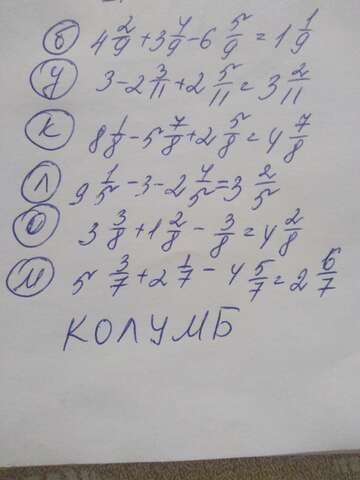 б 4 2/9 + 3 4/9 - 6 5/9 = 1 1/9
у 3 - 2 3/11 + 2 5/11 = 3 2/11
к 8 1/8 - 5 7/8 + 2 5/8 = 4 7/8
л 9 1/5 - 3 - 2 4/5 = 3 2/5
о 3 3/8 + 1 2/8 - 3/8 = 4 2/8
м 5 3/7 + 2 1/7 - 4 5/7 = 2 6/7
КОЛУМБ